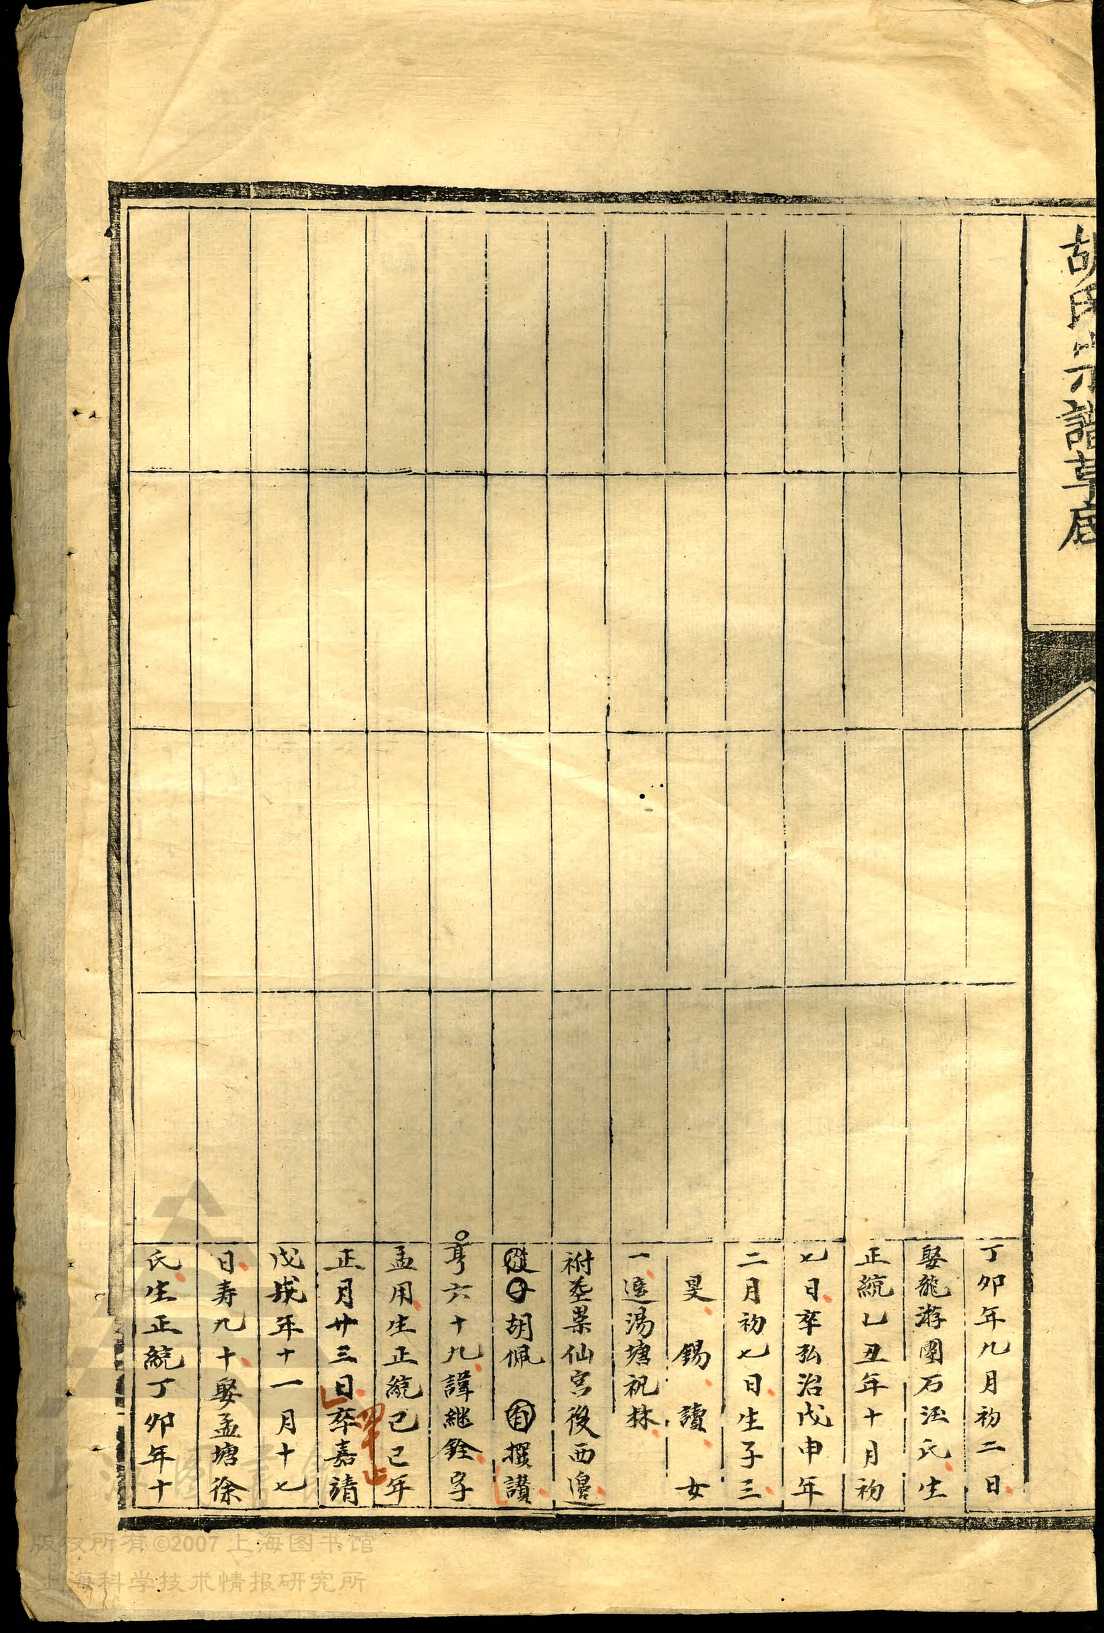 胡氏宗譜草底
丁卯年九月初二日
娶龍游團石汪氏生
正統乙丑年十月初
七日卒弘治戊申年
二月初七日生子三
昊 錫 讀 女
一適湯塘祝林
祔塟業仙宮後西邊
胡佩 撰讃
亨六十九諱継銓字
孟用生正統己巳年
正月廿三日卒嘉靖
戊戌年十一月十七
日寿九十娶孟塘徐
氏生正統丁卯年十
版权所有©2007上海图书馆
上海科学技术情报研究所